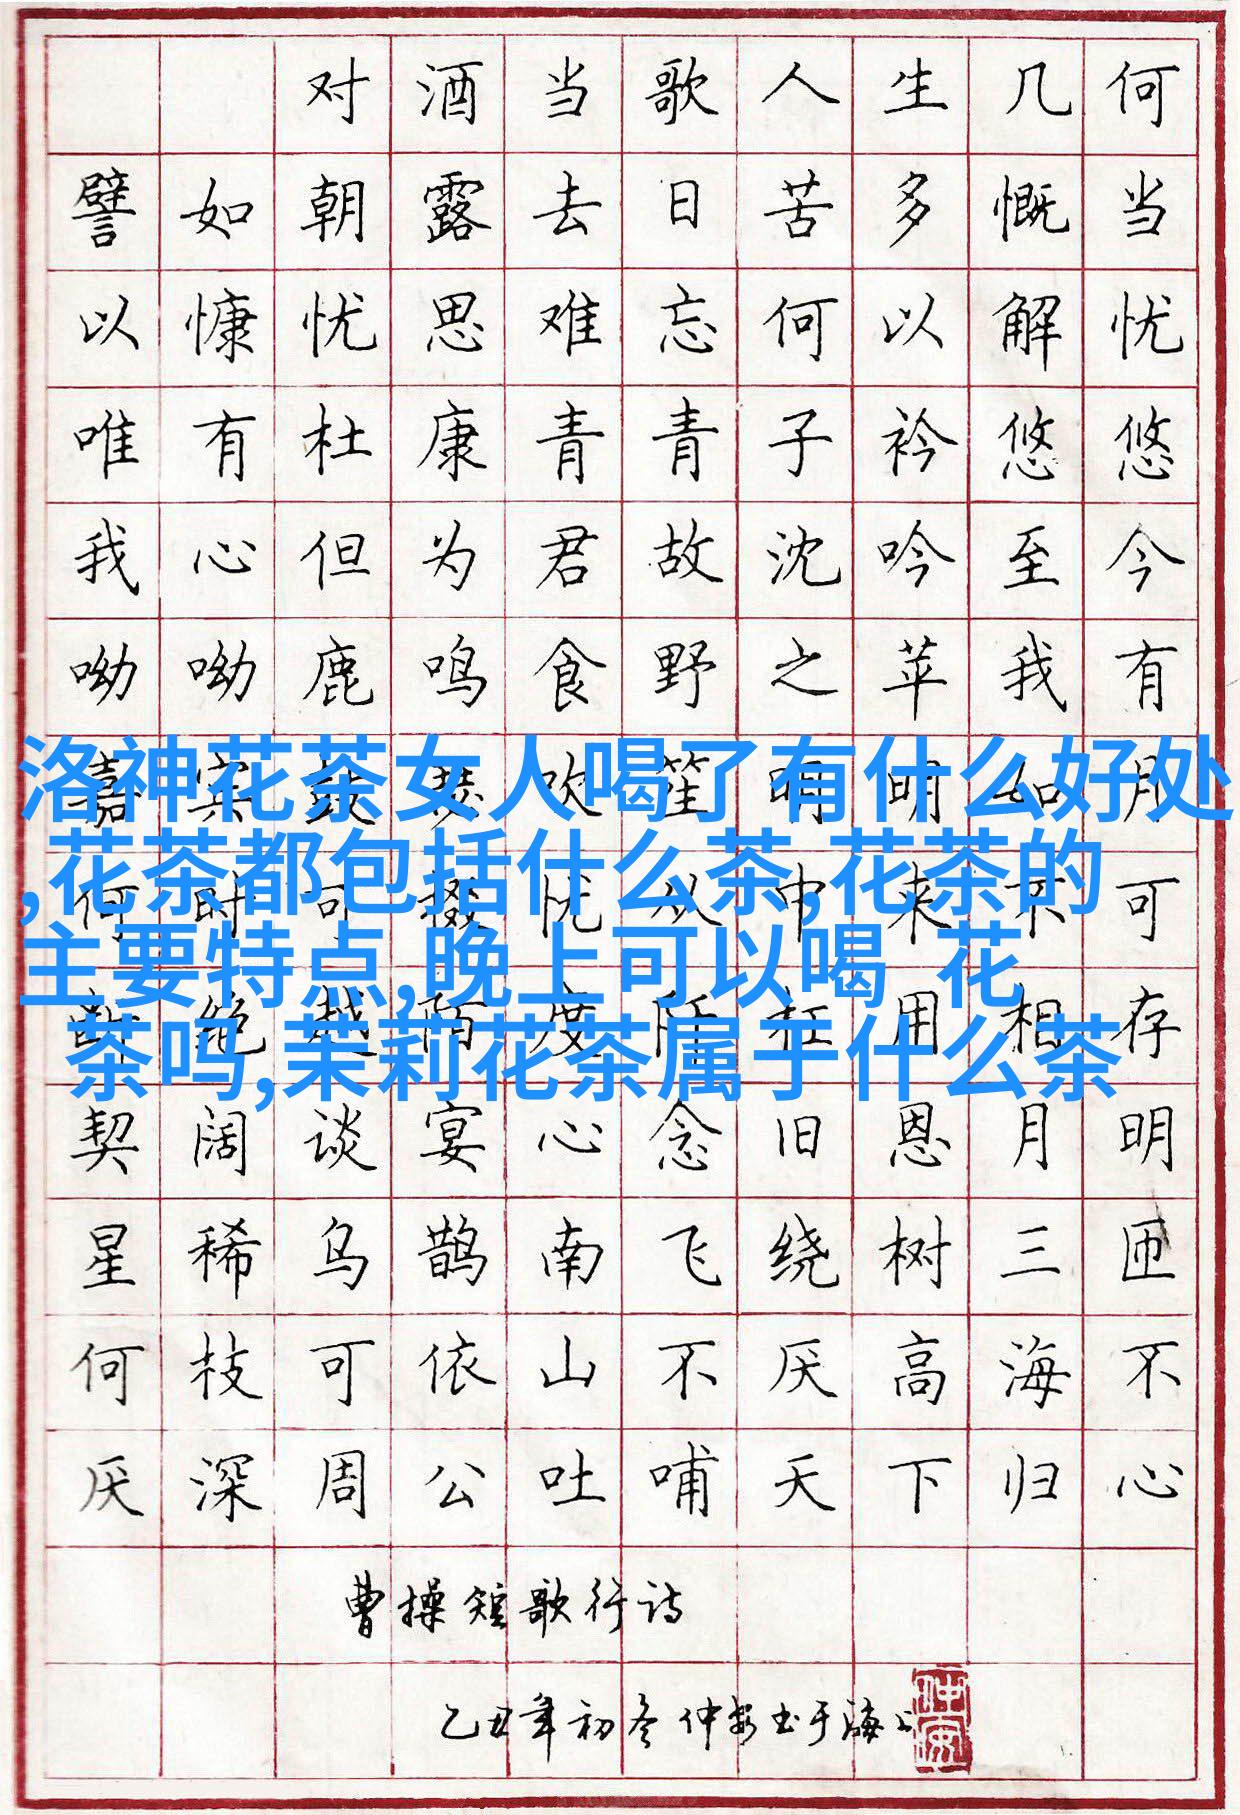 对酒当歌人生几何
譬如朝露去日苦多慨当
以慷忧思难忘何以解忧
唯有杜康青青子衿悠悠
我心但为君故沈吟至今
呦呦鹿鸣食野之苹我有
嘉宾鼓瑟吹笙明明如月
洛神花茶女人喝了有什么好处
何时可掇忧从中来不可
,花茶都包括什么茶,花茶的
主要特点,晚上可以喝 花
断绝越陌度阡枉用相存
茶吗,茉莉花茶属于什么茶
契阔谈宴心念旧恩月明
星稀乌鹊南飞绕树三匝
何枝可依山不厌高海不
厌深周公吐哺天下归心
曹操短歌行诗
乙丑年初冬仲安书于海上
仲安